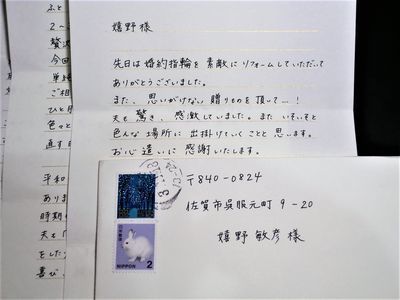 嬉野様
先日は婚約指輪を素敵にリフォームしていただいて
ありがとうございました。
また、思いがけない贈りものを頂して…！
夫も驚き、感激していました。また いそいそと
色んな場所に 出掛けていくことと思います。
お心遣いに 感謝いたします。
〒840-0824
佐賀市呉服元町 9-20
嬉野 敏彦様
日本郵便
NIPPON 2
ふと
2〜
贅沢
今回
単純
ご相
ひと月
色々と
直す
平和
ありま
時期
夫も
をした
喜び